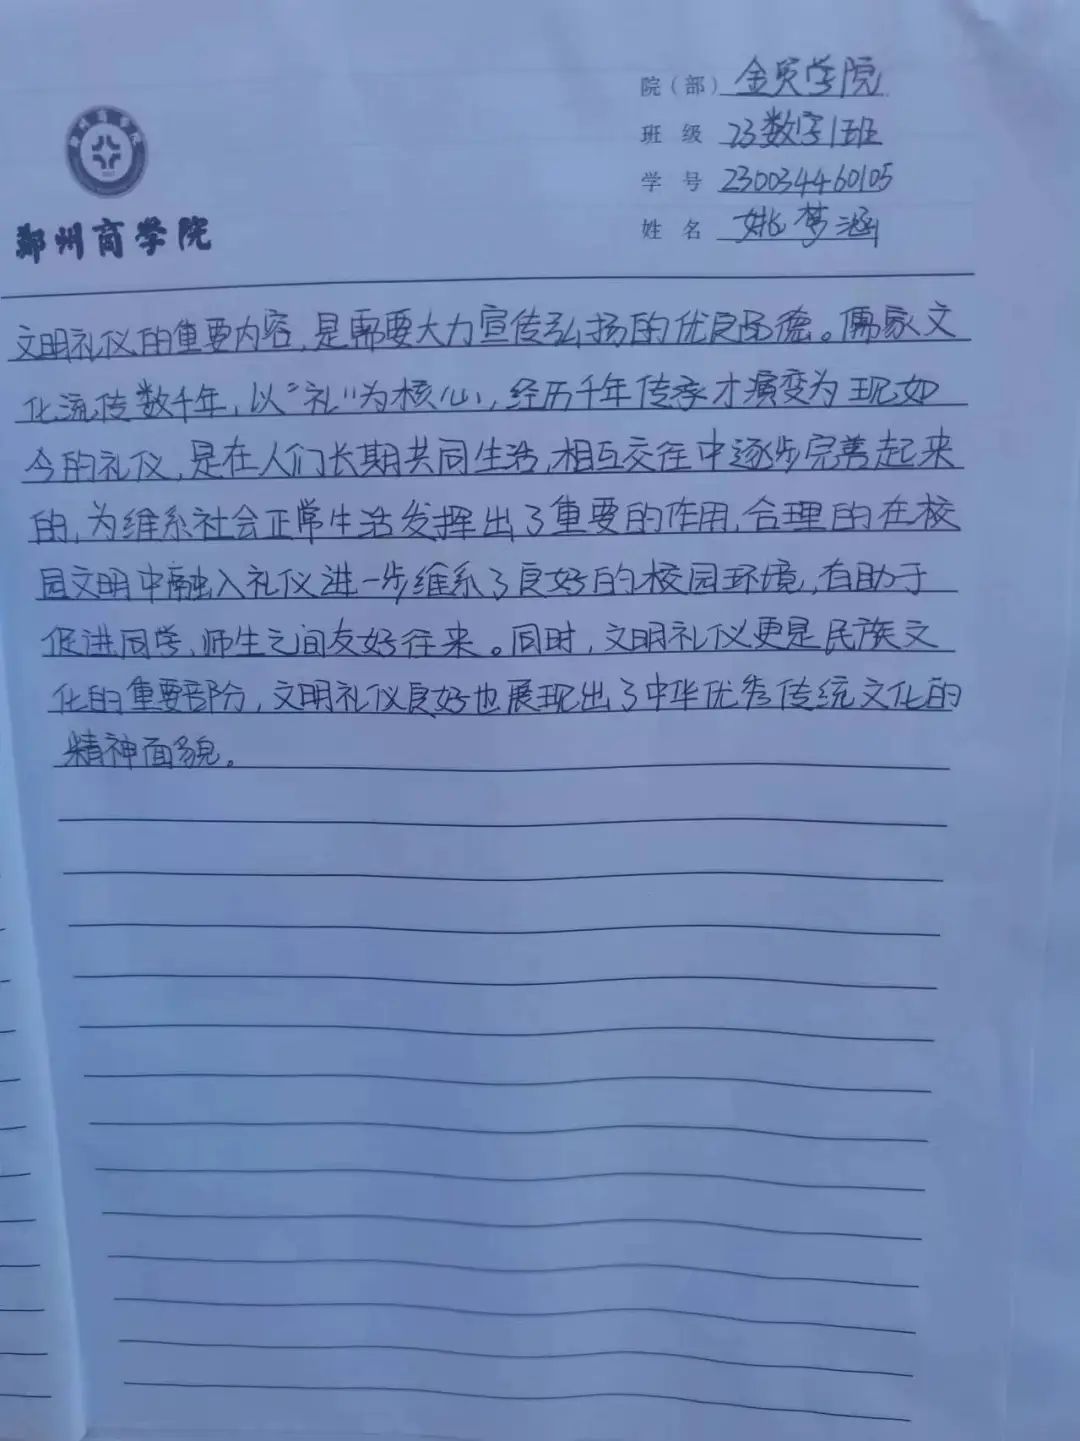 院（部） 金贸学院
班 级 23数字1班
学 号 230034460105
姓 名 姚梦涵
郑州商学院
文明礼仪的重要内容，是需要大力宣传弘扬的优良品德。儒家文
化流传数千年，以“礼”为核心，经历千年传承才演变为现如
今的礼仪，是在人们长期共同生活，相互交往中逐步完善起来
的，为维系社会正常生活发挥出了重要的作用，合理的在校
园文明中融入礼仪进一步维系了良好的校园环境，有助于
促进同学、师生之间友好往来。同时，文明礼仪更是民族文
化的重要部分，文明礼仪良好也展现出了中华优秀传统文化的
精神面貌。